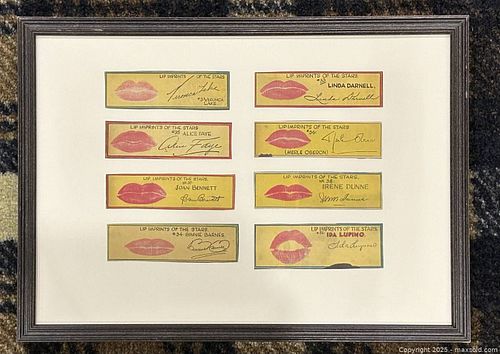 LIP IMPRINTS OF THE STARS
Veronica Lake
VERONICA
LAKE
LIP IMPRINTS OF THE STARS
LINDA DARNELL
Linda Darnell
LIP IMPRINTS OF THE STARS
#35 ALICE FAYE
Alice Faye
LIP IMPRINTS OF THE STARS
#36
Merle Oberon
(MERLE OBERON)
LIP IMPRINTS OF THE STARS
JOAN BENNETT
Joan Bennett
LIP IMPRINTS OF THE STARS
38
IRENE DUNNE
Irene Dunne
LIP IMPRINTS OF THE STARS
#34 BINNIE BARNES
Binnie Barnes
LIP IMPRINTS OF THE STARS
IDA LUPINO
Ida Lupino
Copyright 2025 - maxsold.com